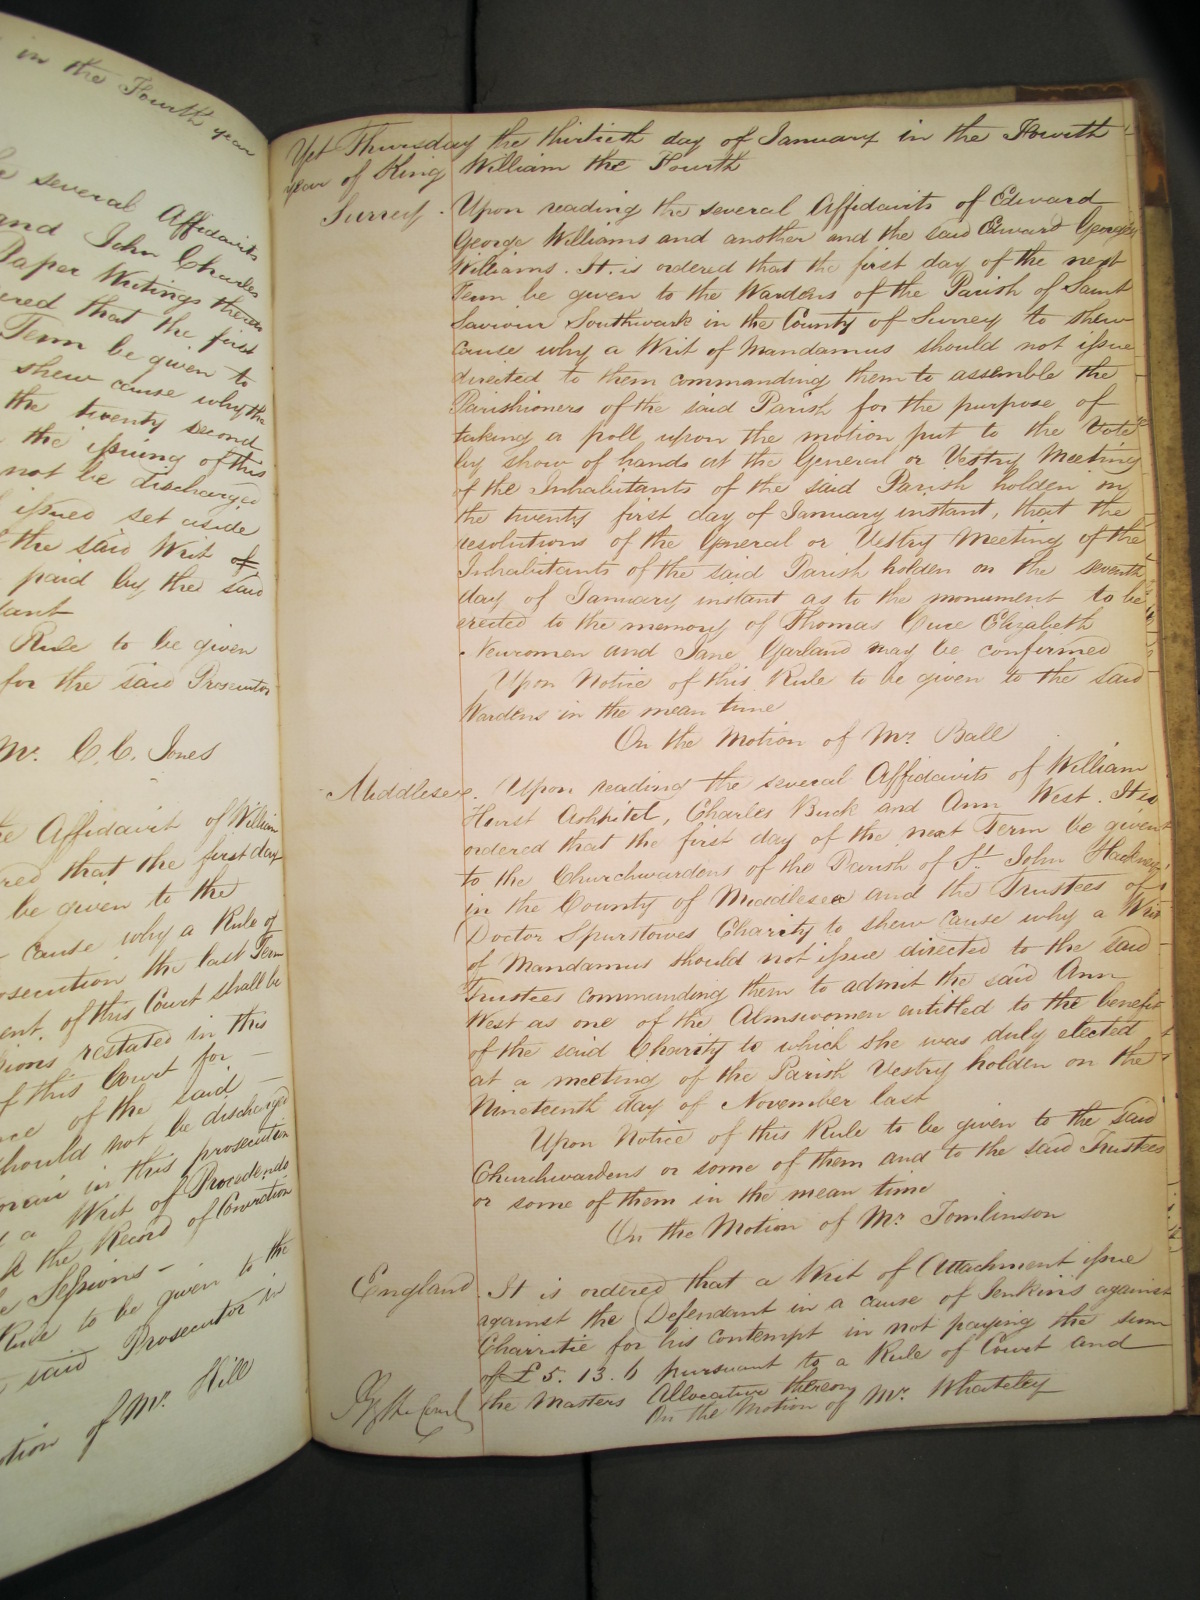 in the Fourth year
several Affidavits
and John Charles
Paper Writings thereon
ered that the first
Term be given to
shew cause why the
the twenty second
the issuing of this
not be discharged
issued set aside
the said Writ of
paid by the said
Rule to be given
for the said Prosecutor
Mr. C. C. Jones
Affidavit of William
red that the first day
be given to the
cause why a Rule of
osecution the last Term
ent of this Court shall be
restated in this
of this Court for
of the said
should not be discharged
in this prosecution
a Writ of Procedendo
the Record of Conviction
Sessions
Rule to be given to the
said Prosecutor in
otion of Mr. Hill
Yet Thursday the thirtieth day of January in the Fourth
year of King William the Fourth
Surrey. Upon reading the several Affidavits of Edward
George Williams and another and the said Edward George
Williams. It is ordered that the first day of the next
Term be given to the Wardens of the Parish of Saint
Saviour Southwark in the County of Surrey to shew
cause why a Writ of Mandamus should not issue
directed to them commanding them to assemble the
Parishioners of the said Parish for the purpose of
taking a poll upon the motion put to the Vote
by show of hands at the General or Vestry Meeting
of the Inhabitants of the said Parish holden on
the twenty first day of January instant, that the
resolutions of the General or Vestry Meeting of the
Inhabitants of the said Parish holden on the seventh
day of January instant as to the monument to be
erected to the memory of Thomas Cure Elizabeth
Newcomen and Jane Garland may be confirmed
Upon Notice of this Rule to be given to the said
Wardens in the mean time
On the Motion of Mr. Ball
Middlesex. Upon reading the several Affidavits of William
Hurst Ashpitel, Charles Buck and Ann West. It is
ordered that the first day of the next Term be given
to the Churchwardens of the Parish of St. John Hackney
in the County of Middlesex and the Trustees of
Doctor Spurstowes Charity to shew cause why a Writ
of Mandamus should not issue directed to the said
Trustees commanding them to admit the said Ann
West as one of the Almswomen entitled to the benefit
of the said Charity to which she was duly elected
at a meeting of the Parish Vestry holden on the
Nineteenth day of November last
Upon Notice of this Rule to be given to the said
Churchwardens or some of them and to the said Trustees
or some of them in the mean time
On the Motion of Mr. Tomlinson
England. It is ordered that a Writ of Attachment issue
against the Defendant in a cause of Jenkins against
Charritie for his contempt in not paying the sum
of £5. 13. 6 pursuant to a Rule of Court and
the Masters Allocatur thereon
On the Motion of Mr. Whateley
By the Court